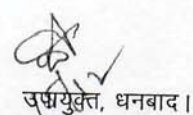 उपायुक्त, धनबाद।